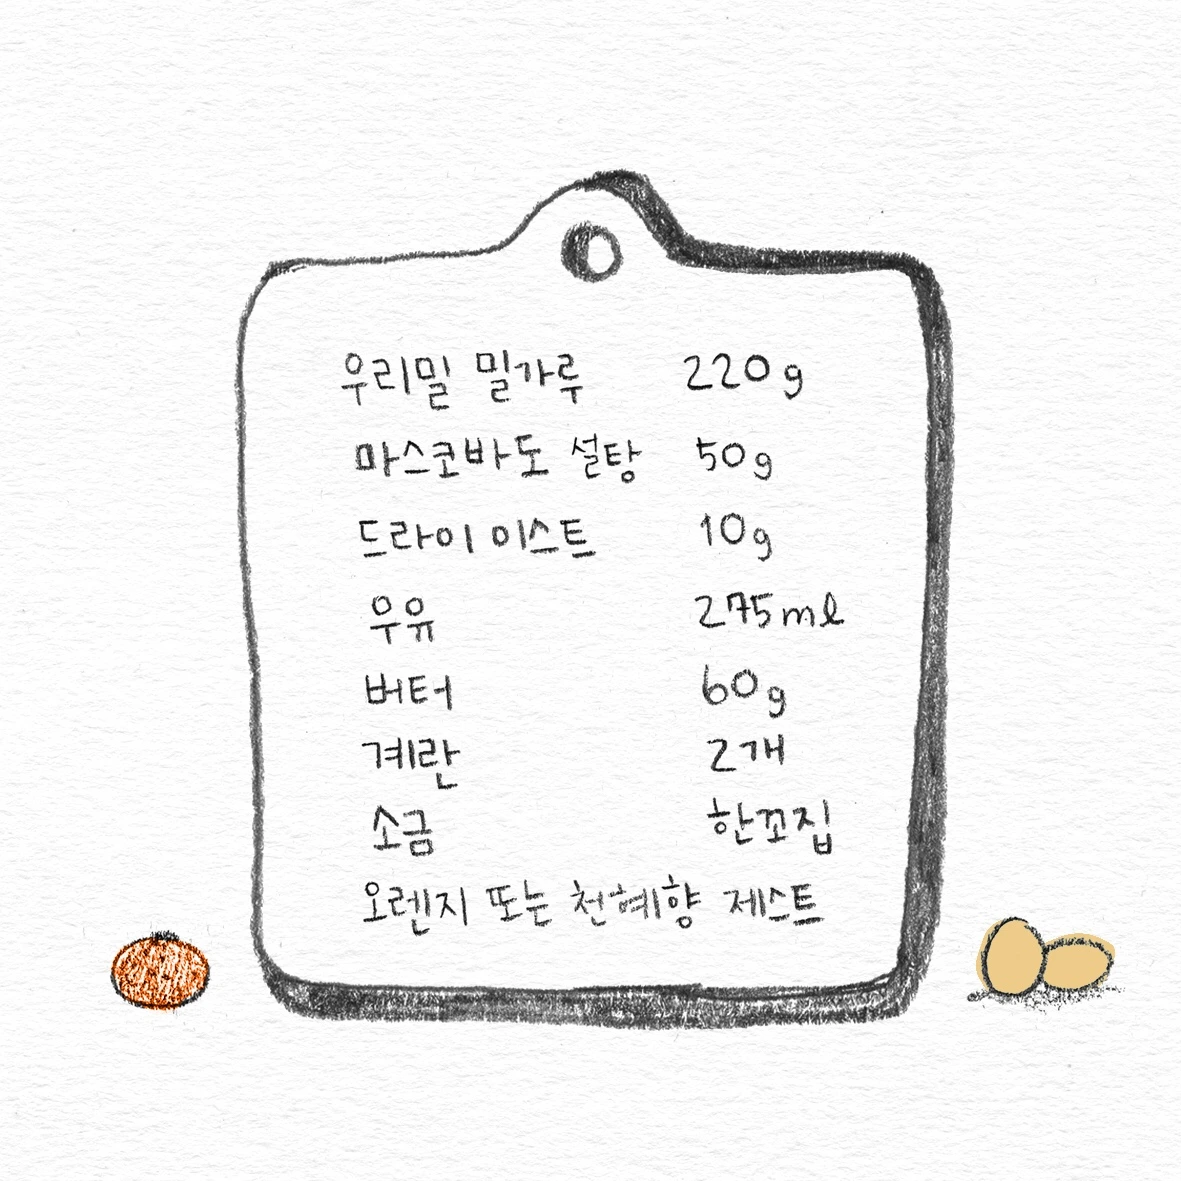 우리밀 밀가루 220g
마스코바도 설탕 50g
드라이 이스트 10g
우유 275ml
버터 60g
계란 2개
소금 한꼬집
오렌지 또는 천혜향 제스트